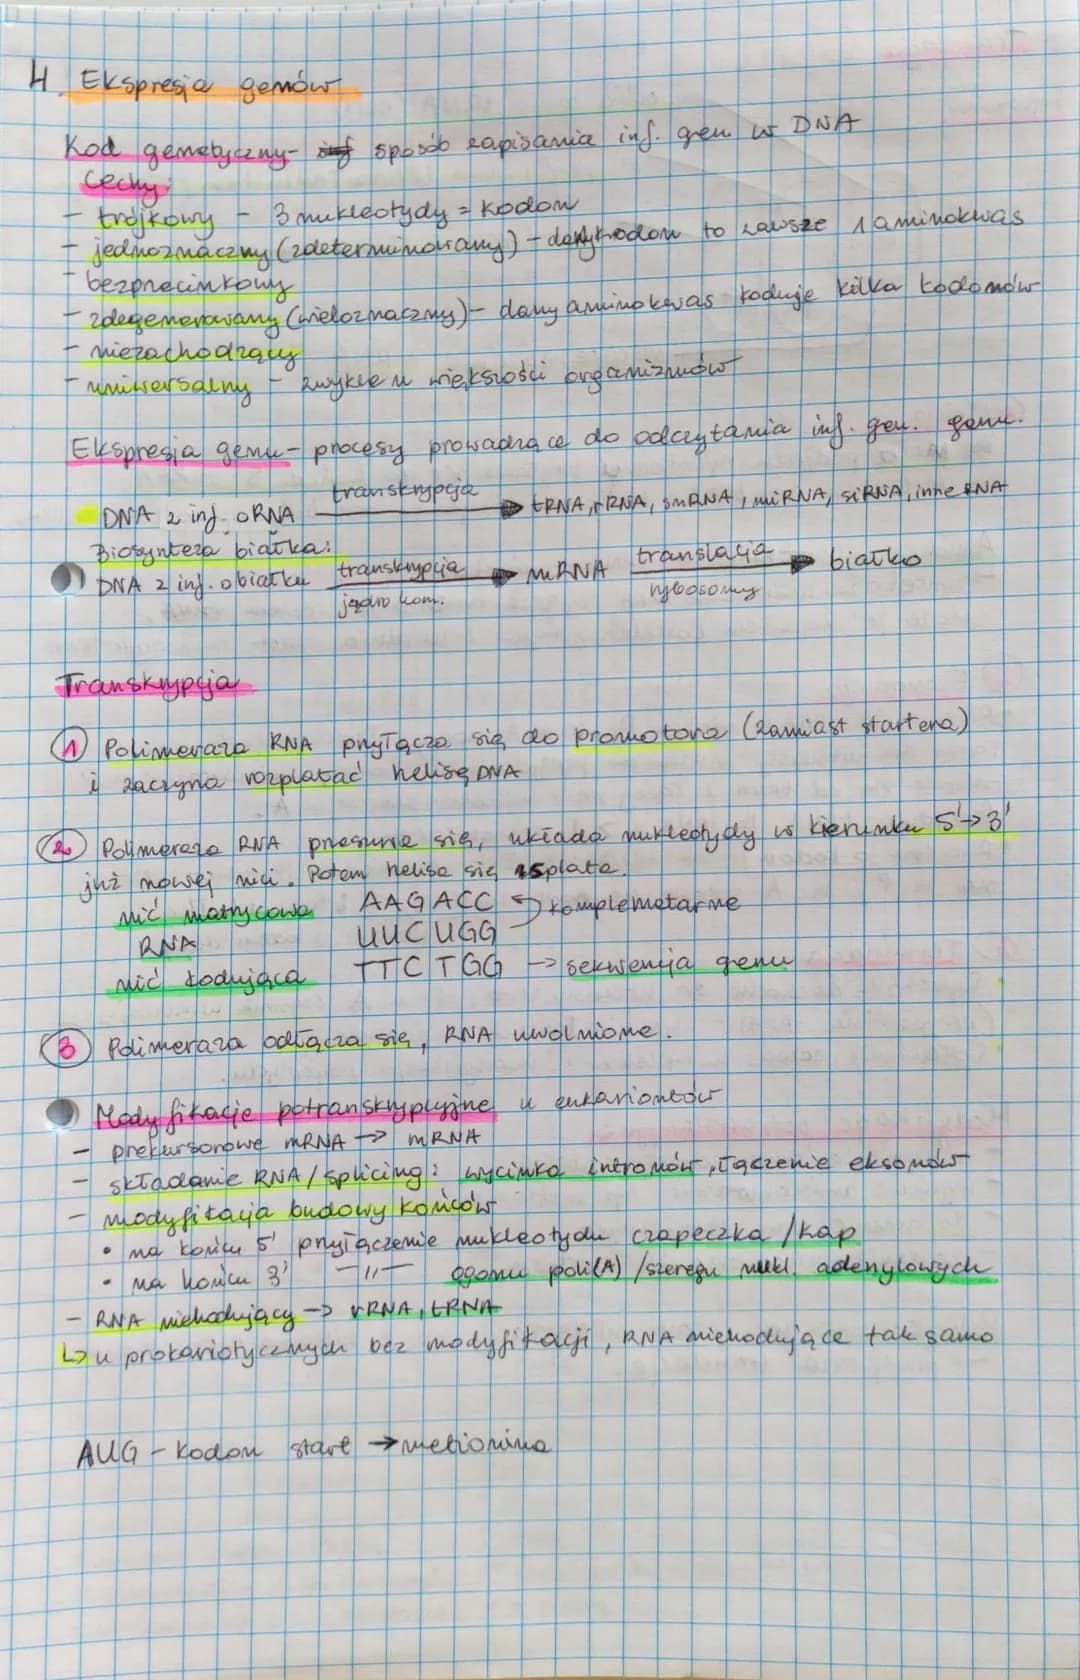 4. Ekspresja genów
Kod genetyczny - sposób zapisania inf. gen w DNA
Cechy:
- trójkowy - 3 nukleotydy = kodon
- jednoznaczny (zdeterminowany) - dany kodon to zawsze 1 aminokwas
- bezprzecinkowy
- zdegenerowany (wieloznaczny) - dany aminokwas koduje kilka kodonów
- niezachodzący
- uniwersalny - zwykle u większości organizmów
Ekspresja genu - procesy prowadzące do odczytania inf. gen. genu.
DNA z inf. o RNA transkrypcja → tRNA, rRNA, snRNA, miRNA, siRNA, inne RNA
Biosynteza białka:
DNA z inf. o białku transkrypcja → mRNA translacja → białko
jądro kom. rybosomy
Transkrypcja
① Polimeraza RNA przyłącza się do promotora (zamiast startera)
i zaczyna rozplatać helisę DNA
② Polimeraza RNA przesuwa się, układa nukleotydy w kierunku 5'→3'
już nowej nici. Potem helisa się splata.
nić matrycowa AAGACC
RNA UUCUGG komplemetarne
nić kodująca TTCTGG → sekwencja genu
③ Polimeraza odłącza się, RNA uwolnione.
Modyfikacje potranskrypcyjne u eukariontów
- prekursorowe mRNA → mRNA
- składanie RNA / splicing: wycinka intronów, łączenie eksonów
- modyfikacja budowy końców
• na końcu 5' przyłączenie nukleotydu czapeczka / kap
• na końcu 3' -||- ogonu poli(A) / szeregu nukl. adenylowych
- RNA niekodujący → rRNA, tRNA
↳ u prokariotycznych bez modyfikacji, RNA niekodujące tak samo
AUG - kodon start → metionina